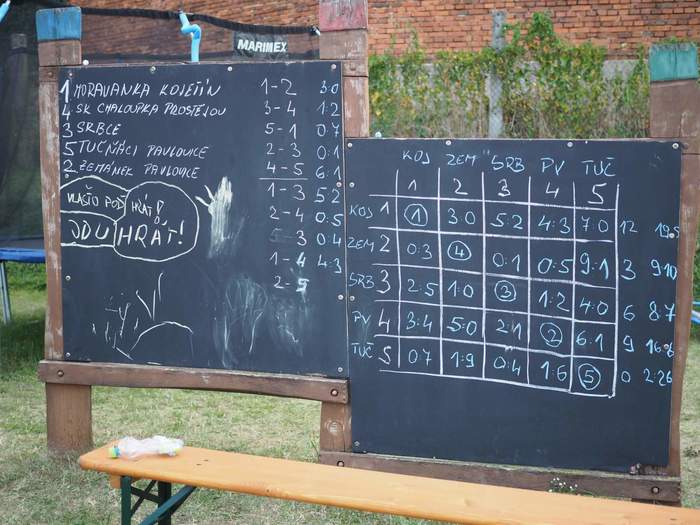 MARIMEX
1 MORAVANKA KOJETÍN 1-2 3:0
4 SK CHALOUPKA PROSTĚJOV 3-4 1:2
3 SRBCE 5-1 0:7
5 TUČŇÁCI PAVLOVICE 2-3 0:1
2 ŽEMÁNEK PAVLOVICE 4-5 6:1
1-3 5:2
2-4 0:5
5-3 0:4
1-4 4:3
2-5
VLAŠŤO POĎ HRÁT!
JDU HRÁT!
KOJ ZEM SRB PV TUČ
1 2 3 4 5
KOJ 1 1 3:0 5:2 4:3 7:0 12 19:5
ZEM 2 0:3 4 0:1 0:5 9:1 3 9:10
SRB 3 2:5 1:0 3 1:2 4:0 6 8:7
PV 4 3:4 5:0 2:1 2 6:1 9 16:6
TUČ 5 0:7 1:9 0:4 1:6 5 0 2:26